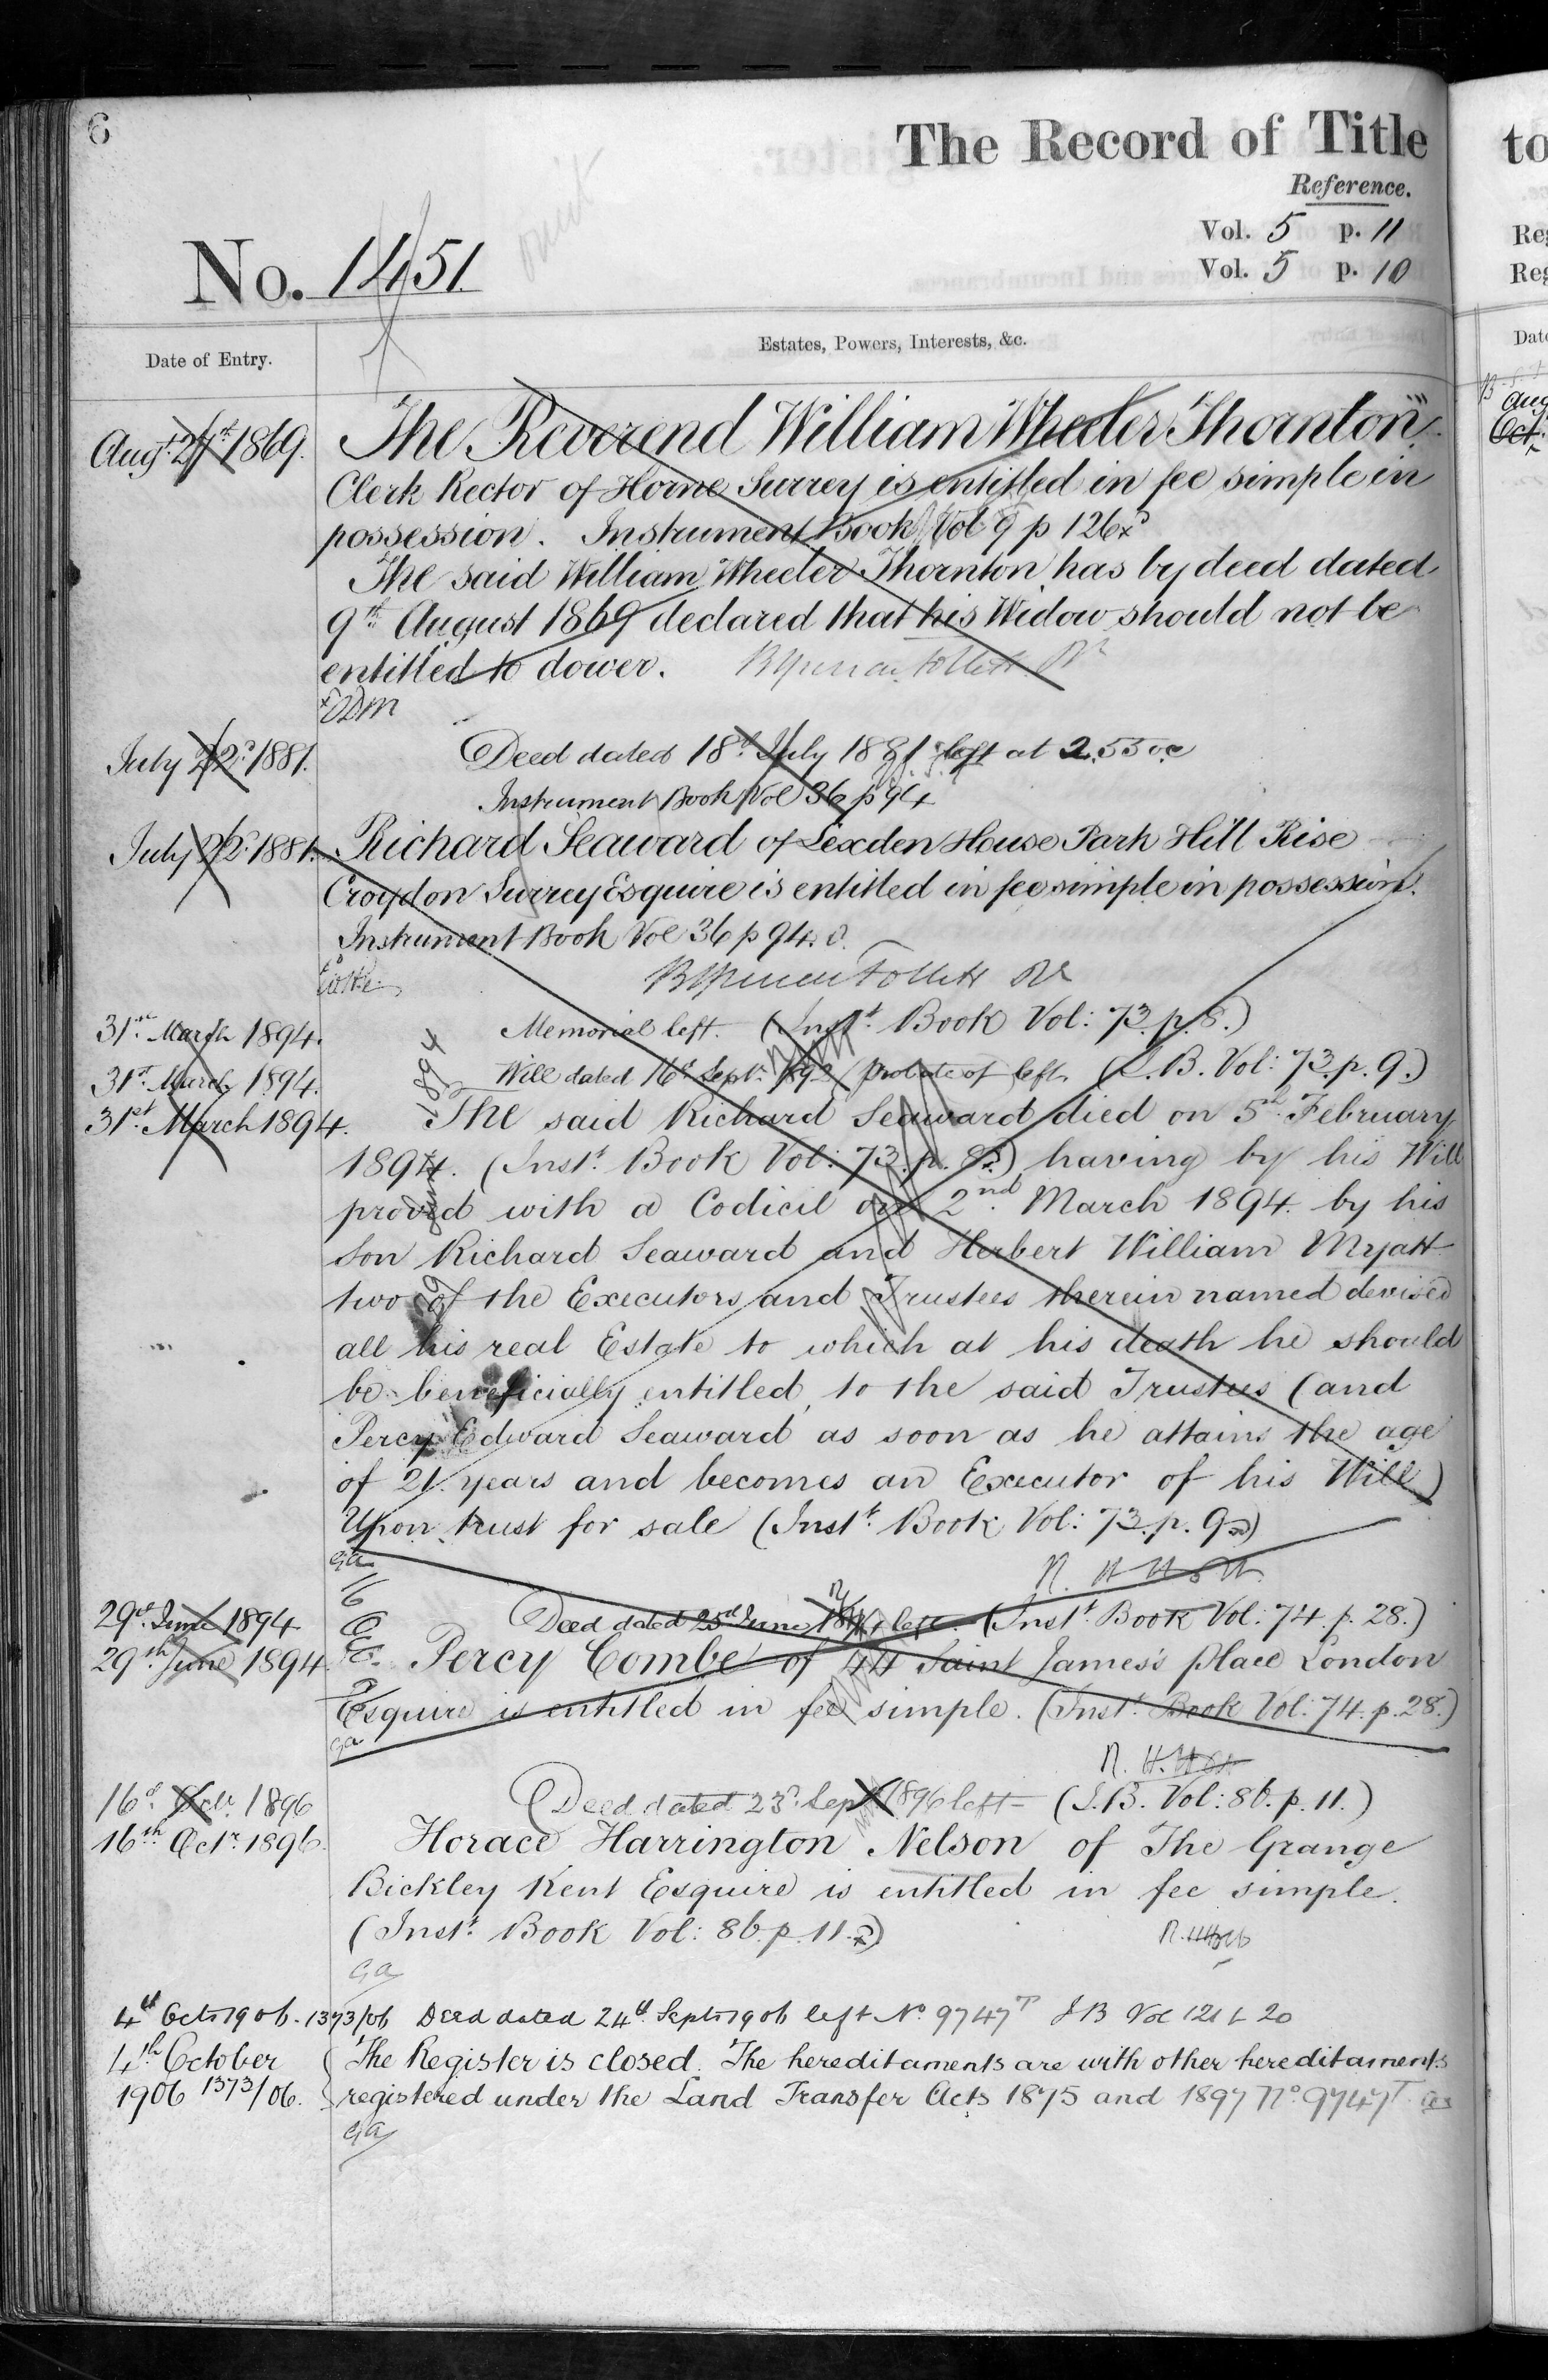 6
The Record of Title
Reference.
Vol. 5 p. 11
Vol. 5 p. 10
No. 1451.
omit
Date of Entry.
Estates, Powers, Interests, &c.
Augt. 27th 1869.
The Reverend William Wheeler Thornton
Clerk Rector of Horne Surrey is entitled in fee simple in
possession. Instrument Book Vol 9 p 126
The said William Wheeler Thornton has by deed dated
9th August 1869 declared that his Widow should not be
entitled to dower.
July 22d 1881.
Deed dated 18th July 1881 left at 2.53 oc
Instrument Book Vol 36 p 94
July 22d 1881.
Richard Seaward of Lexden House Park Hill Rise
Croydon Surrey Esquire is entitled in fee simple in possession.
Instrument Book Vol 36 p 94.
31st March 1894.
Memorial left. (Inst. Book Vol: 73. p. 8.)
31st March 1894.
Will dated 16th Sept. 1892 (probate of) left. (I.B. Vol: 73. p. 9.)
31st March 1894.
The said Richard Seaward died on 5th February
1894. (Inst. Book Vol: 73. p. 8.) having by his Will
proved with a Codicil on 2nd March 1894 by his
Son Richard Seaward and Herbert William Myatt
two of the Executors and Trustees therein named devised
all his real Estate to which at his death he should
be beneficially entitled, to the said Trustees (and
Percy Edward Seaward as soon as he attains the age
of 21 years and becomes an Executor of his Will)
Upon trust for sale (Inst. Book Vol: 73. p. 9)
ga
29th June 1894
Deed dated 25d June 1894 left. (Inst. Book Vol: 74. p. 28.)
29th June 1894
Percy Combe of 44 Saint James's place London
Esquire is entitled in fee simple. (Inst. Book Vol: 74. p. 28.)
ga
16th Oct. 1896
Deed dated 23d Sept 1896 left (I.B. Vol: 86. p. 11.)
16th Octr. 1896.
Horace Harrington Nelson of The Grange
Bickley Kent Esquire is entitled in fee simple.
(Inst. Book Vol: 86. p. 11.)
ga
4th Oct 1906. 1373/06 Deed dated 24th Sept 1906 left No 9747T I B Vol 121 p 20
4th October
The Register is closed. The hereditaments are with other hereditaments
1906 1373/06.
registered under the Land Transfer Acts 1875 and 1897 No. 9747T.
ga
to
Reg
Reg
Date
Aug
Oct.